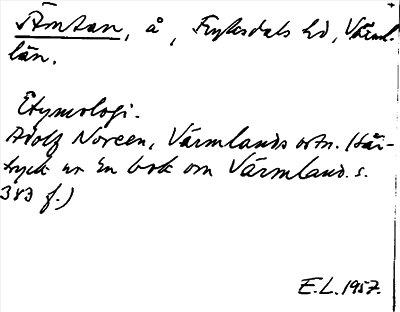 Ämtan, å, Fryksdals hd, Värml.
län.
Etymologi.
Adolf Noreen, Värmlands ortn. (Sär-
tryck ur En bok om Värmland. s.
383 f.)
E.L. 1957.